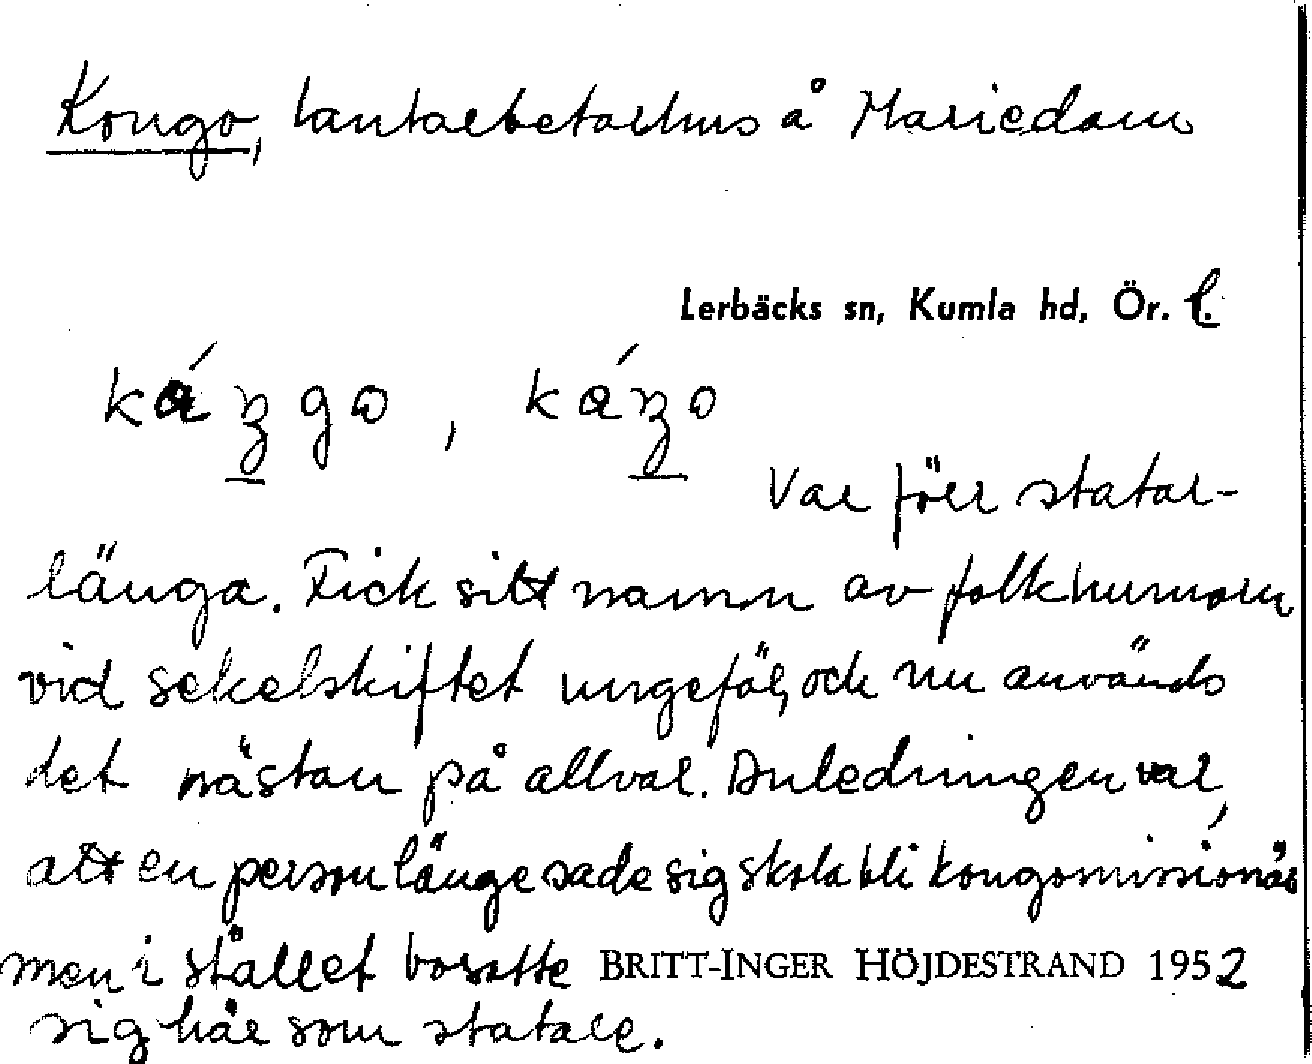 Kongo, lantarbetarhus å Mariedam
Lerbäcks sn, Kumla hd, Ör. l.
káŋgo, káŋo
Var förr statar-
länga. Fick sitt namn av folkhumorn
vid sekelskiftet ungefär, och nu används
det nästan på allvar. Anledningen var,
att en person länge sade sig skola bli kongomissionär
men i stället bosatte BRITT-INGER HÖJDESTRAND 1952
sig här som statare.